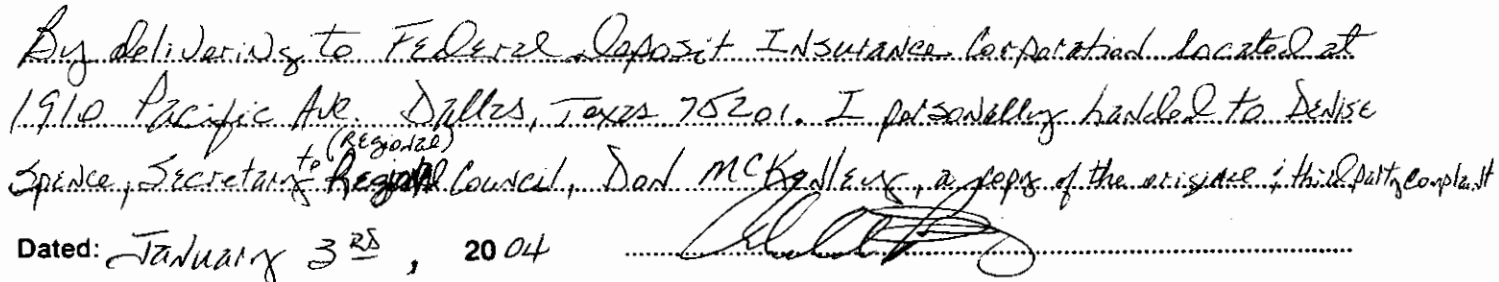 By delivering to Federal Deposit Insurance Corporation located at
1910 Pacific Ave. Dallas, Texas 75201. I personally handed to Denise
(Regional)
Spence, Secretary to Regional Council, Don McKenley, a copy of the original & third party complaint
Dated: January 3rd, 2004